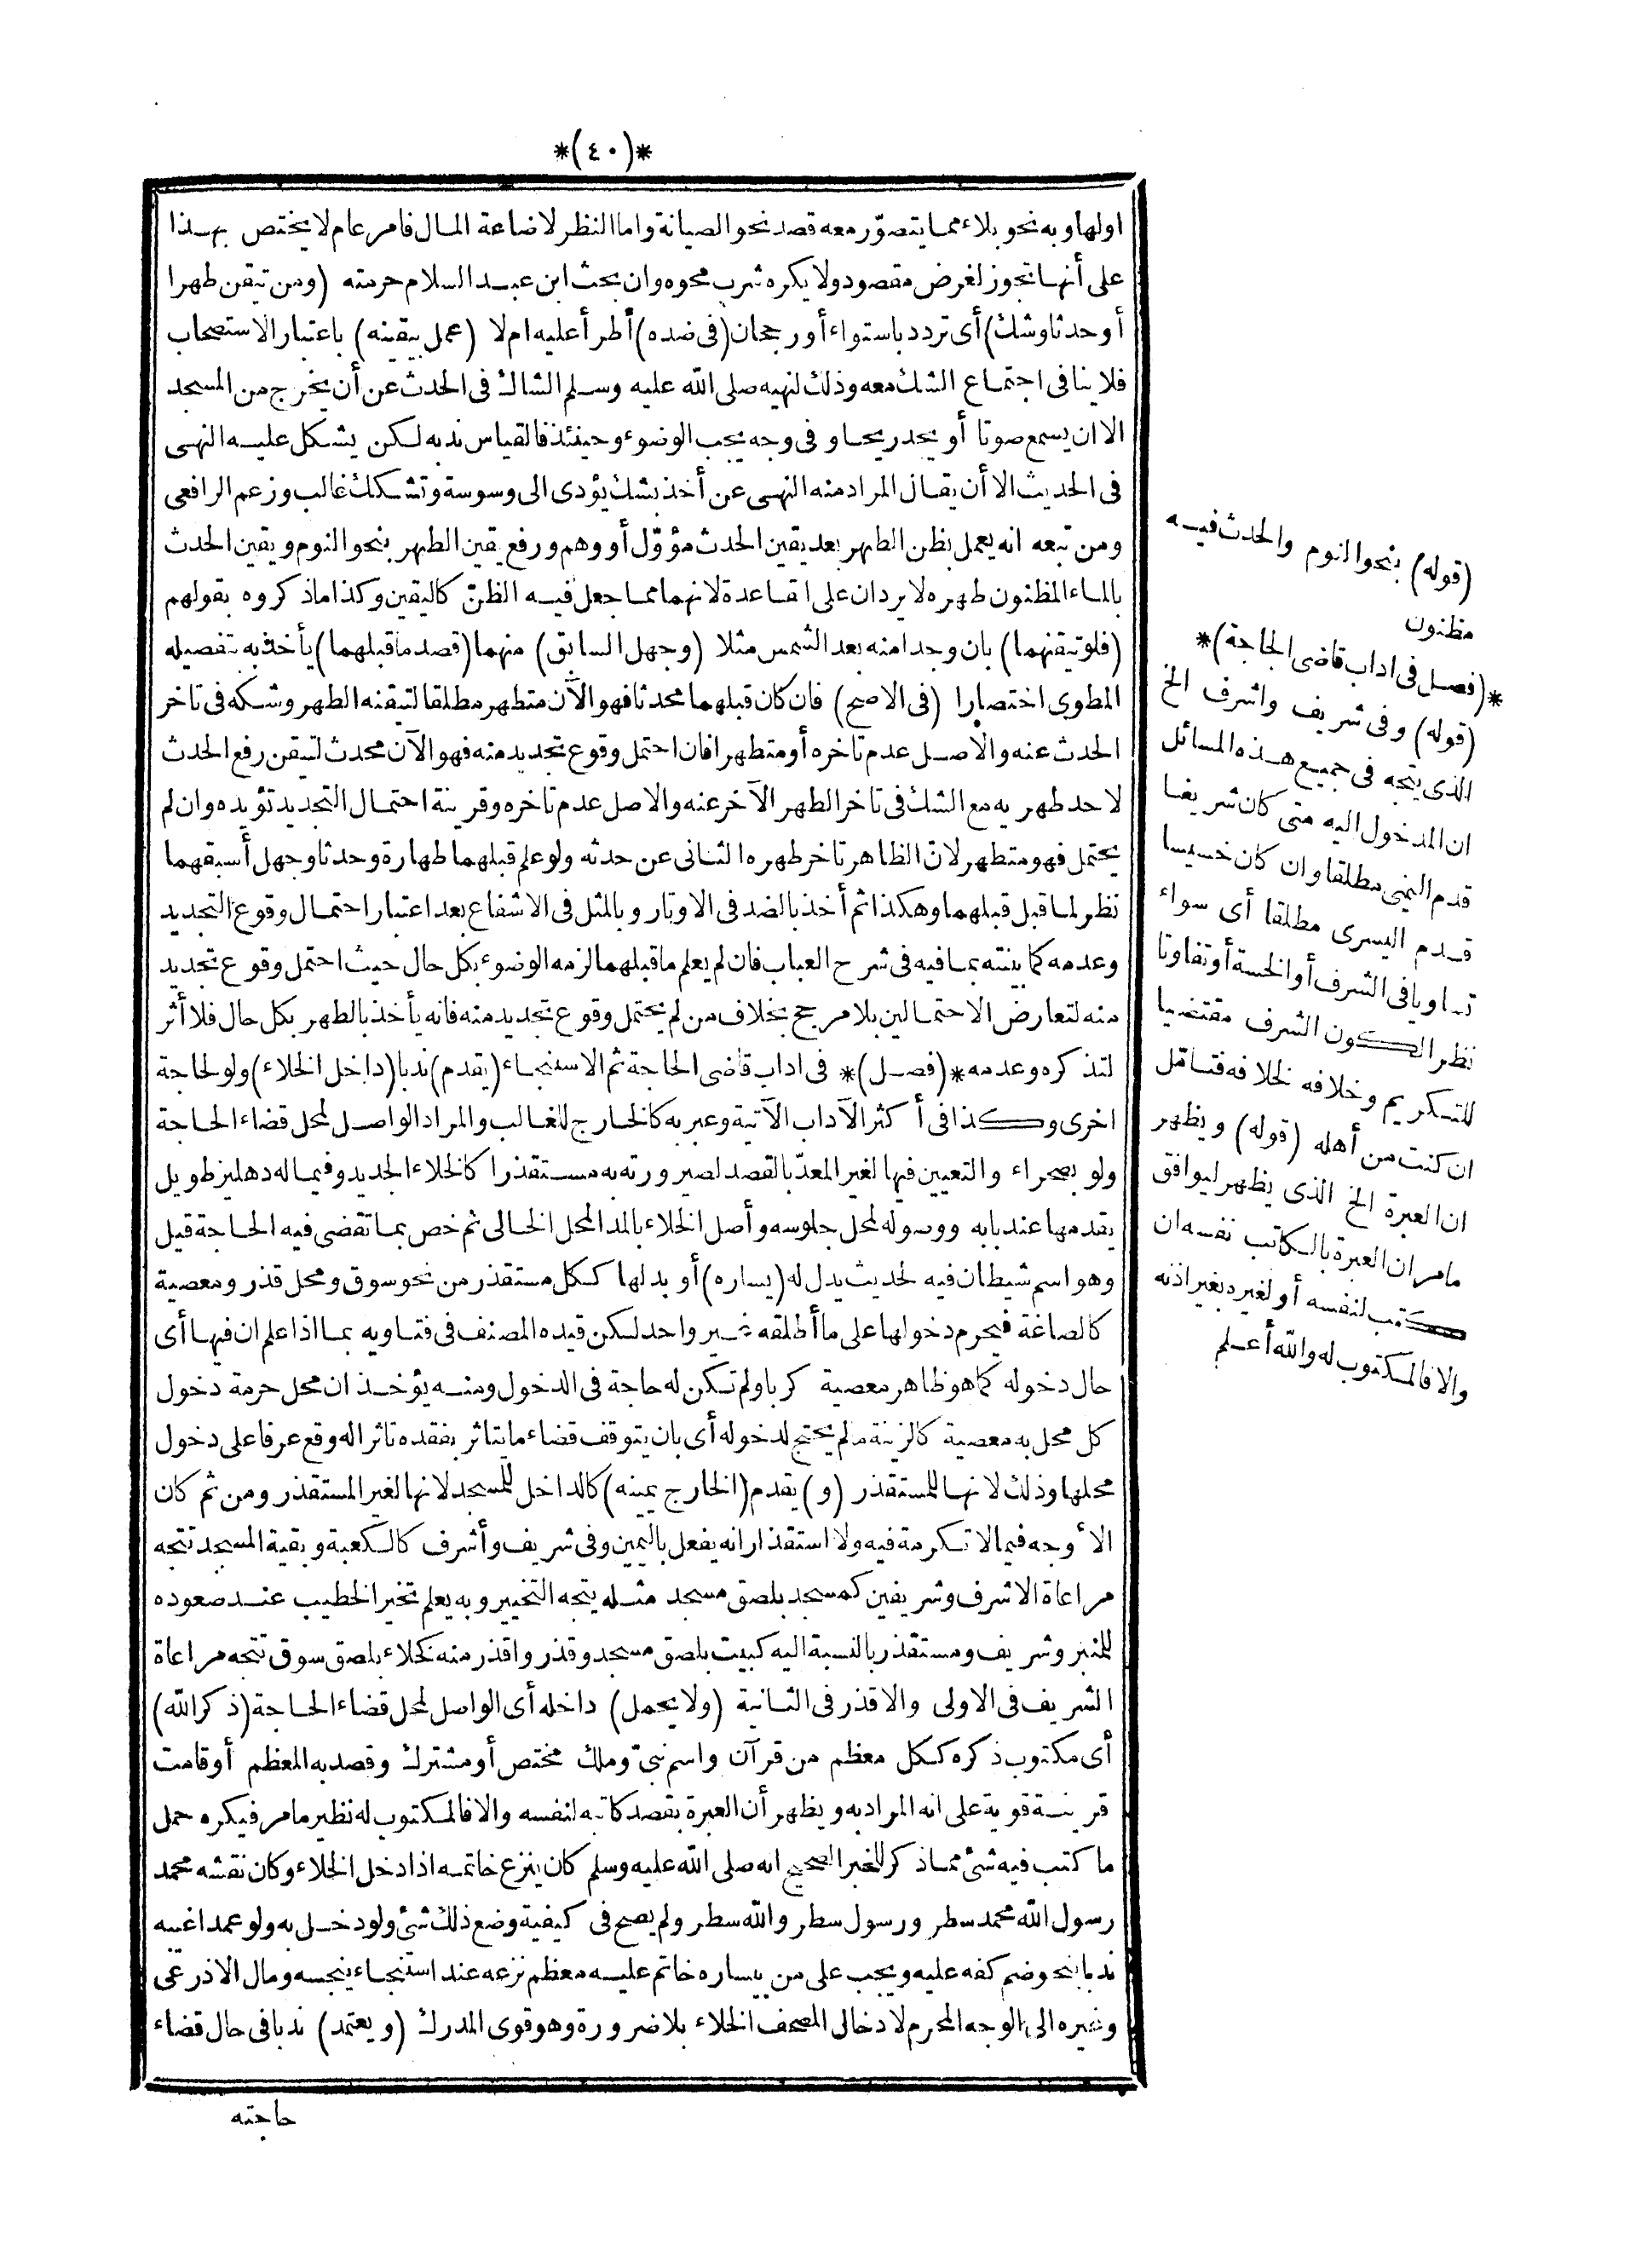 *(٤٠)*
اولها وبه نحو بلاء مما يتصوّر معه قصد نحو الصيانة واما النظر لاضاعة المال فامر عام لا يختص بهذا
على أنها تجوز لغرض مقصود ولا يكره شرب محوه وان بحث ابن عبد السلام حرمته (ومن تيقن طهرا
أو حدثا وشك) أى تردد باستواء أو رجحان (فى ضده) أطرأ عليه ام لا (عمل بيقينه) باعتبار الاستصحاب
فلا ينافى اجتماع الشك معه وذلك لنهيه صلى الله عليه وسلم الشاك فى الحدث عن أن يخرج من المسجد
الا ان يسمع صوتا أو يجد ريحا وفى وجه يجب الوضوء وحينئذ فالقياس ندبه لكن يشكل عليه النهى
فى الحديث الا أن يقال المراد منه النهى عن أخذ بشك يؤدى الى وسوسة وتشكك غالب وزعم الرافعى
ومن تبعه انه يعمل بظن الطهر بعد يقين الحدث مؤوّل أو وهم ورفع يقين الطهر بنحو النوم ويقين الحدث
بالماء المظنون طهره لا يردان على القاعدة لانهما مما جعل فيه الظنّ كاليقين وكذا ما ذكروه بقولهم
(فلو تيقنهما) بان وجدا منه بعد الشمس مثلا (وجهل السابق) منهما (فضد ما قبلهما) يأخذ به تفصيله
المطوى اختصارا (فى الاصح) فان كان قبلهما محدثا فهو الآن متطهر مطلقا لتيقنه الطهر وشكه فى تاخر
الحدث عنه والاصل عدم تاخره أو متطهرا فان احتمل وقوع تجديد منه فهو الآن محدث لتيقن رفع الحدث
لاحد طهريه مع الشك فى تاخر الطهر الآخر عنه والاصل عدم تاخره وقرينة احتمال التجديد تؤيده وان لم
يحتمل فهو متطهر لانّ الظاهر تاخر طهره الثانى عن حدثه ولو علم قبلهما طهارة وحدثا وجهل أسبقهما
نظر لما قبل قبلهما وهكذا ثم أخذ بالضد فى الاوتار وبالمثل فى الاشفاع بعد اعتبار احتمال وقوع التجديد
وعدمه كما بينته بما فيه فى شرح العباب فان لم يعلم ما قبلهما لزمه الوضوء بكل حال حيث احتمل وقوع تجديد
منه لتعارض الاحتمالين بلا مرجح بخلاف من لم يحتمل وقوع تجديد منه فانه يأخذ بالطهر بكل حال فلا أثر
لتذكره وعدمه *(فصل)* فى اداب قاضى الحاجة ثم الاستنجاء (يقدم) ندبا (داخل الخلاء) ولو لحاجة
اخرى وكذا فى أكثر الآداب الآتية وعبر به كالخارج للغالب والمراد الواصل لمحل قضاء الحاجة
ولو بصحراء والتعيين فيها لغير المعدّ بالقصد لصيرورته به مستقذرا كالخلاء الجديد وفيما له دهليز طويل
يقدمها عند بابه ووصوله لمحل جلوسه وأصل الخلاء بالمد المحل الخالى ثم خص بما تقضى فيه الحاجة قيل
وهو اسم شيطان فيه لحديث يدل له (يساره) أو بدلها ككل مستقذر من نحو سوق ومحل قذر ومعصية
كالصاغة فيحرم دخولها على ما أطلقه غير واحد لكن قيده المصنف فى فتاويه بما اذا علم ان فيها أى
حال دخوله كما هو ظاهر معصية كربا ولم تكن له حاجة فى الدخول ومنه يؤخذ ان محل حرمة دخول
كل محل به معصية كالزينة ما لم يحتج لدخوله أى بان يتوقف قضاء ما يتاثر بفقده تاثرا له وقع عرفا على دخول
محلها وذلك لانها للمستقذر (و) يقدم (الخارج يمينه) كالداخل للمسجد لانها لغير المستقذر ومن ثم كان
الأوجه فيما لا تكرمة فيه ولا استقذار انه يفعل باليمين وفى شريف وأشرف كالكعبة وبقية المسجد تتجه
مراعاة الاشرف وشريفين كمسجد بلصق مسجد مثله يتجه التخيير وبه يعلم تخير الخطيب عند صعوده
للمنبر وشريف ومستقذر بالنسبة اليه كبيت بلصق مسجد وقذر واقذر منه كخلاء بلصق سوق تتجه مراعاة
الشريف فى الاولى والاقذر فى الثانية (ولا يحمل) داخله أى الواصل لمحل قضاء الحاجة (ذكر الله)
أى مكتوب ذكره ككل معظم من قرآن واسم نبىّ وملك مختص أو مشترك وقصد به المعظم أو قامت
قرينة قوية على انه المراد به ويظهر أن العبرة بقصد كاتبه لنفسه والا فالمكتوب له نظير ما مر فيكره حمل
ما كتب فيه شئ مما ذكر للخبر الصحيح انه صلى الله عليه وسلم كان ينزع خاتمه اذا دخل الخلاء وكان نقشه محمد
رسول الله محمد سطر ورسول سطر والله سطر ولم يصح فى كيفية وضع ذلك شئ ولو دخل به ولو عمدا غيبه
ندبا بنحو ضم كفه عليه ويجب على من بيساره خاتم عليه معظم نزعه عند استنجاء ينجسه ومال الاذرعى
وغيره الى الوجه المحرم لادخال المصحف الخلاء بلا ضرورة وهو قوى المدرك (ويعتمد) ندبا فى حال قضاء
حاجته
(قوله) بنحو النوم والحدث فيه
مظنون
*(فصل فى اداب قاضى الحاجة)*
(قوله) وفى شريف واشرف الخ
الذى يتجه فى جميع هذه المسائل
ان المدخول اليه متى كان شريفا
قدم اليمنى مطلقا وان كان خسيسا
قدم اليسرى مطلقا أى سواء
تساويا فى الشرف أو الخسة أو تفاوتا
نظرا لكون الشرف مقتضيا
للتكريم وخلافه لخلافه فتامّل
ان كنت من أهله (قوله) ويظهر
ان العبرة الخ الذى يظهر ليوافق
ما مر ان العبرة بالكاتب نفسه ان
كتب لنفسه أو لغيره بغير اذنه
والا فالمكتوب له والله أعلم